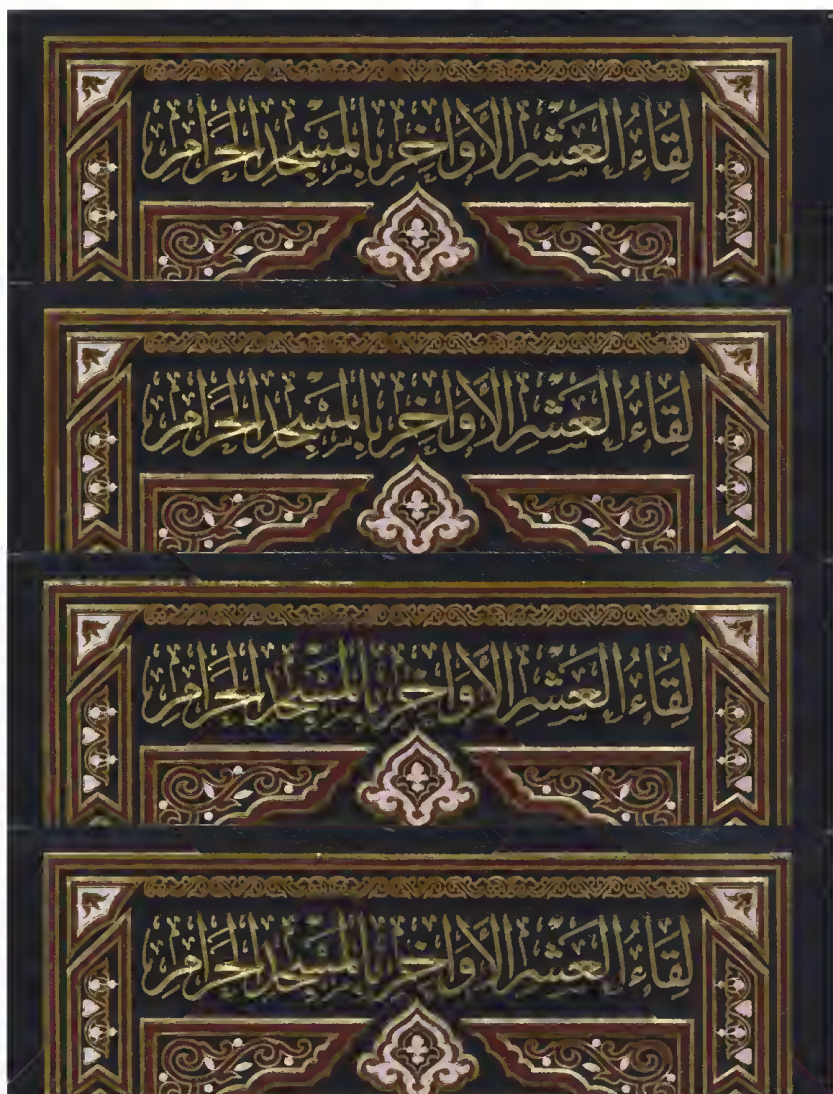 لِقَاءُ العَشْرِ الأَوَاخِرِ بِالمَسْجِدِ الحَرَامِ
لِقَاءُ العَشْرِ الأَوَاخِرِ بِالمَسْجِدِ الحَرَامِ
لِقَاءُ العَشْرِ الأَوَاخِرِ بِالمَسْجِدِ الحَرَامِ
لِقَاءُ العَشْرِ الأَوَاخِرِ بِالمَسْجِدِ الحَرَامِ